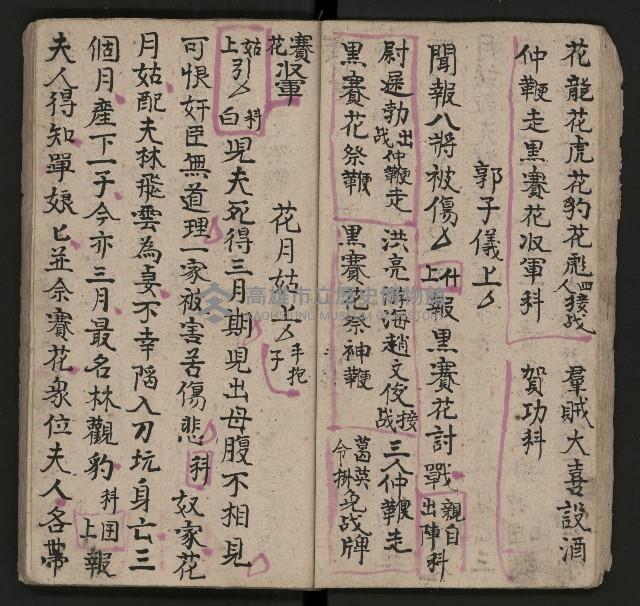 花龍花虎花豹花彪四人接战　羣賊大喜設酒
仲鞭走黑賽花収軍科　賀功科
郭子儀上
聞報八將被傷　什上報黑賽花討戰　親自出陣科
尉遲勃出战仲鞭走　洪亮　海趙文俊接战　三人仲鞭走
黑賽花祭鞭　黑賽花祭神鞭　葛英令掛免战牌
賽花収軍　花月姑上　手抱子
姑上引　科白　児夫死得三月期児出母腹不相見
可恨奸臣無道理一家被害苦傷悲　科　奴家花
月姑配夫林飛雲為妻不幸陷入刀坑身亡三
個月產下一子今亦三月最名林觀豹科　囯上報
夫人得知單娘匕並余賽花衆位夫人各帶
高雄市立歷史博物館
KAOHSIUNG MUSEUM OF HISTORY